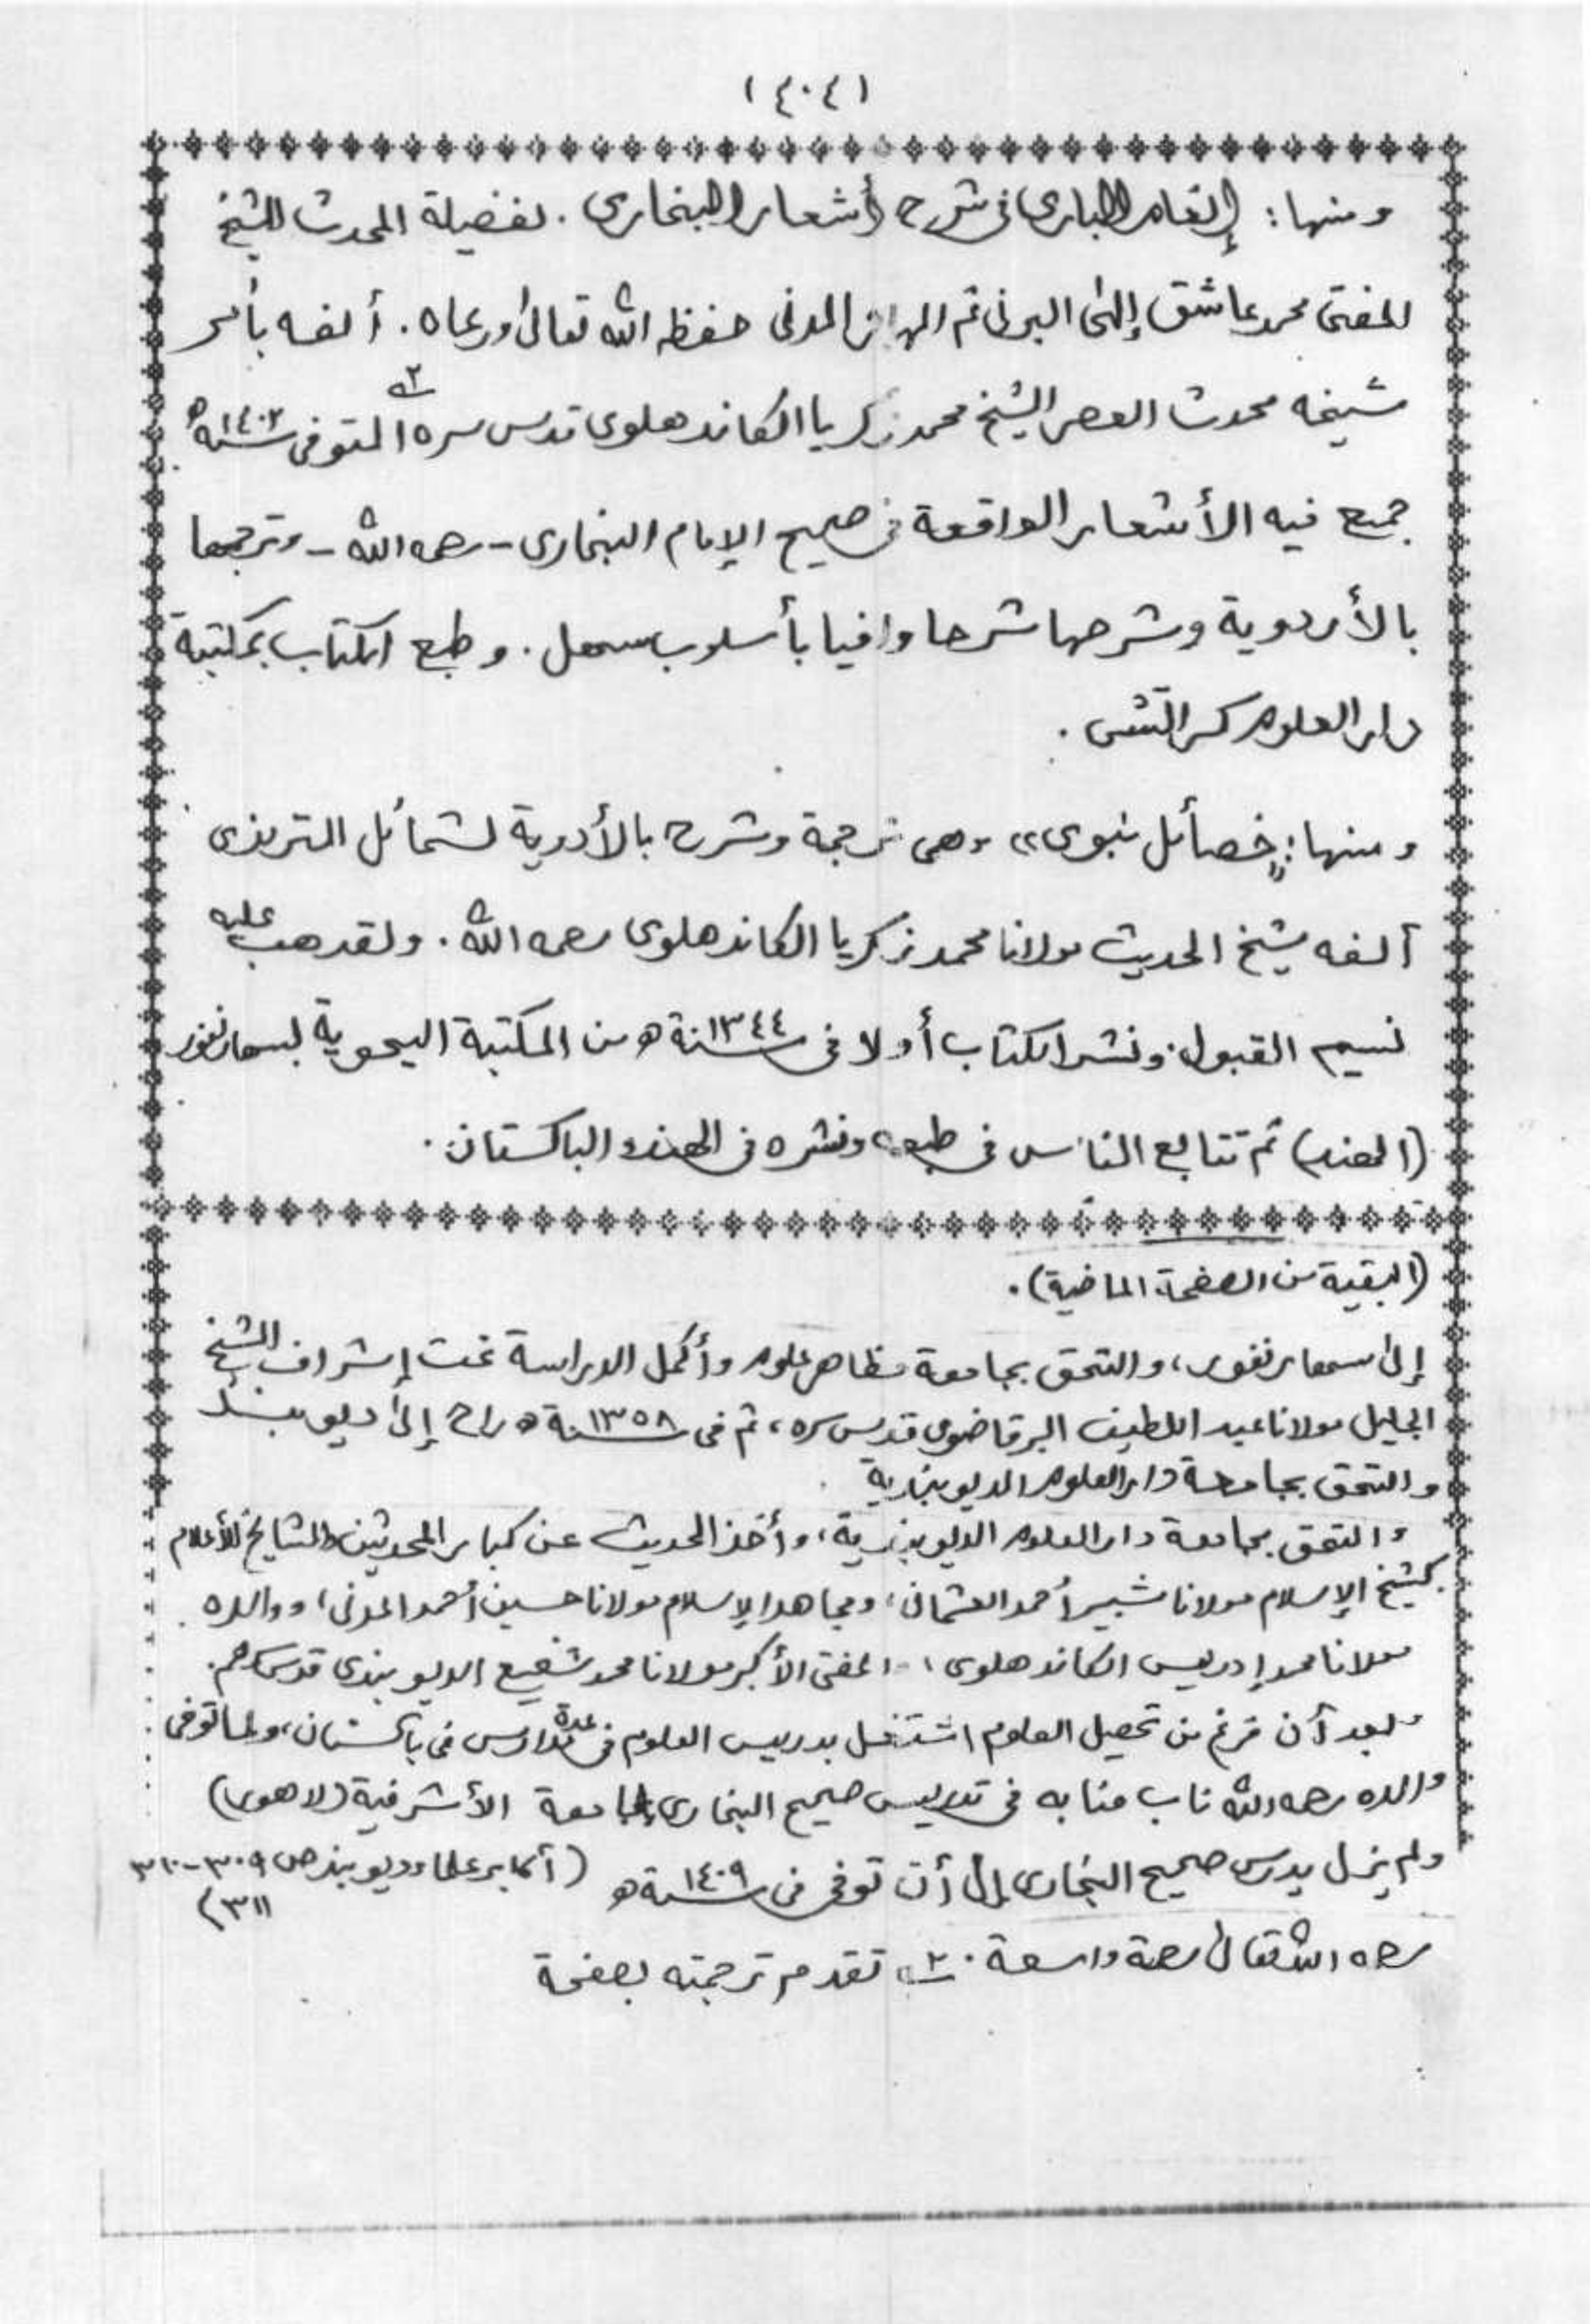 (٤٠٤)
ومنها: إنعام الباري في شرح أشعار البخاري. لفضيلة المحدث الشيخ
المفتى محمد عاشق إلهى البرني ثم المدنى حفظه الله تعالى ورعاه. ألفه بأمر
شيخه محدث العصر الشيخ محمد زكريا الكاندهلوى قدس سره ٢ـه المتوفى سنة ١٤٠٢ه
جمع فيه الأشعار الواقعة في صحيح الإمام البخارى - رحمه الله - وترجمها
بالأردوية وشرحها شرحا وافيا بأسلوب سهل. وطبع الكتاب بمكتبة
دار العلوم كراتشى.
ومنها: "خصائل نبوى" وهى ترجمة وشرح بالأردوية لشمائل الترمذى
ألفه شيخ الحديث مولانا محمد زكريا الكاندهلوى رحمه الله. ولقد هب عليه
نسيم القبول. ونشر الكتاب أولا فى سنة ١٣٤٤ه من المكتبة اليحوية لسهارنفور
(الهند) ثم تتابع الناس فى طبعه ونشره فى الهند والباكستان.
(البقية من الصفحة الماضية).
إلى سهارنفور، والتحق بجامعة مظاهر علوم وأكمل الدراسة تحت إشراف الشيخ
الجليل مولانا عبد اللطيف البرقاضوى قدس سره، ثم فى سنة ١٣٥٨ه راح إلى ديوبند
والتحق بجامعة دار العلوم الديوبندية
والتحق بجامعة دار العلوم الديوبندية، وأخذ الحديث عن كبار المحدثين والمشايخ الأعلام
كشيخ الإسلام مولانا شبير أحمد العثمانى، ومجاهد الإسلام مولانا حسين أحمد المدنى، ووالده
مولانا محمد إدريس الكاندهلوى، والمفتى الأكبر مولانا محمد شفيع الديوبندى قدس سرهم.
وبعد أن فرغ من تحصيل العلوم اشتغل بدريس العلوم فى عدة مدارس فى باكستان، ولما توفى
والده رحمه الله ناب منابه فى تدريس صحيح البخارى بجامعة الأشرفية (لاهور)
ولم يزل يدرس صحيح البخارى إلى أن توفى فى سنة ١٤٠٩ه (أكابر علماء ديوبند ص ٣٠٩-٣١٠
٣١١)
رحمه الله تعالى رحمة واسعة. ٢ـه تقدم ترجمته بصفحة